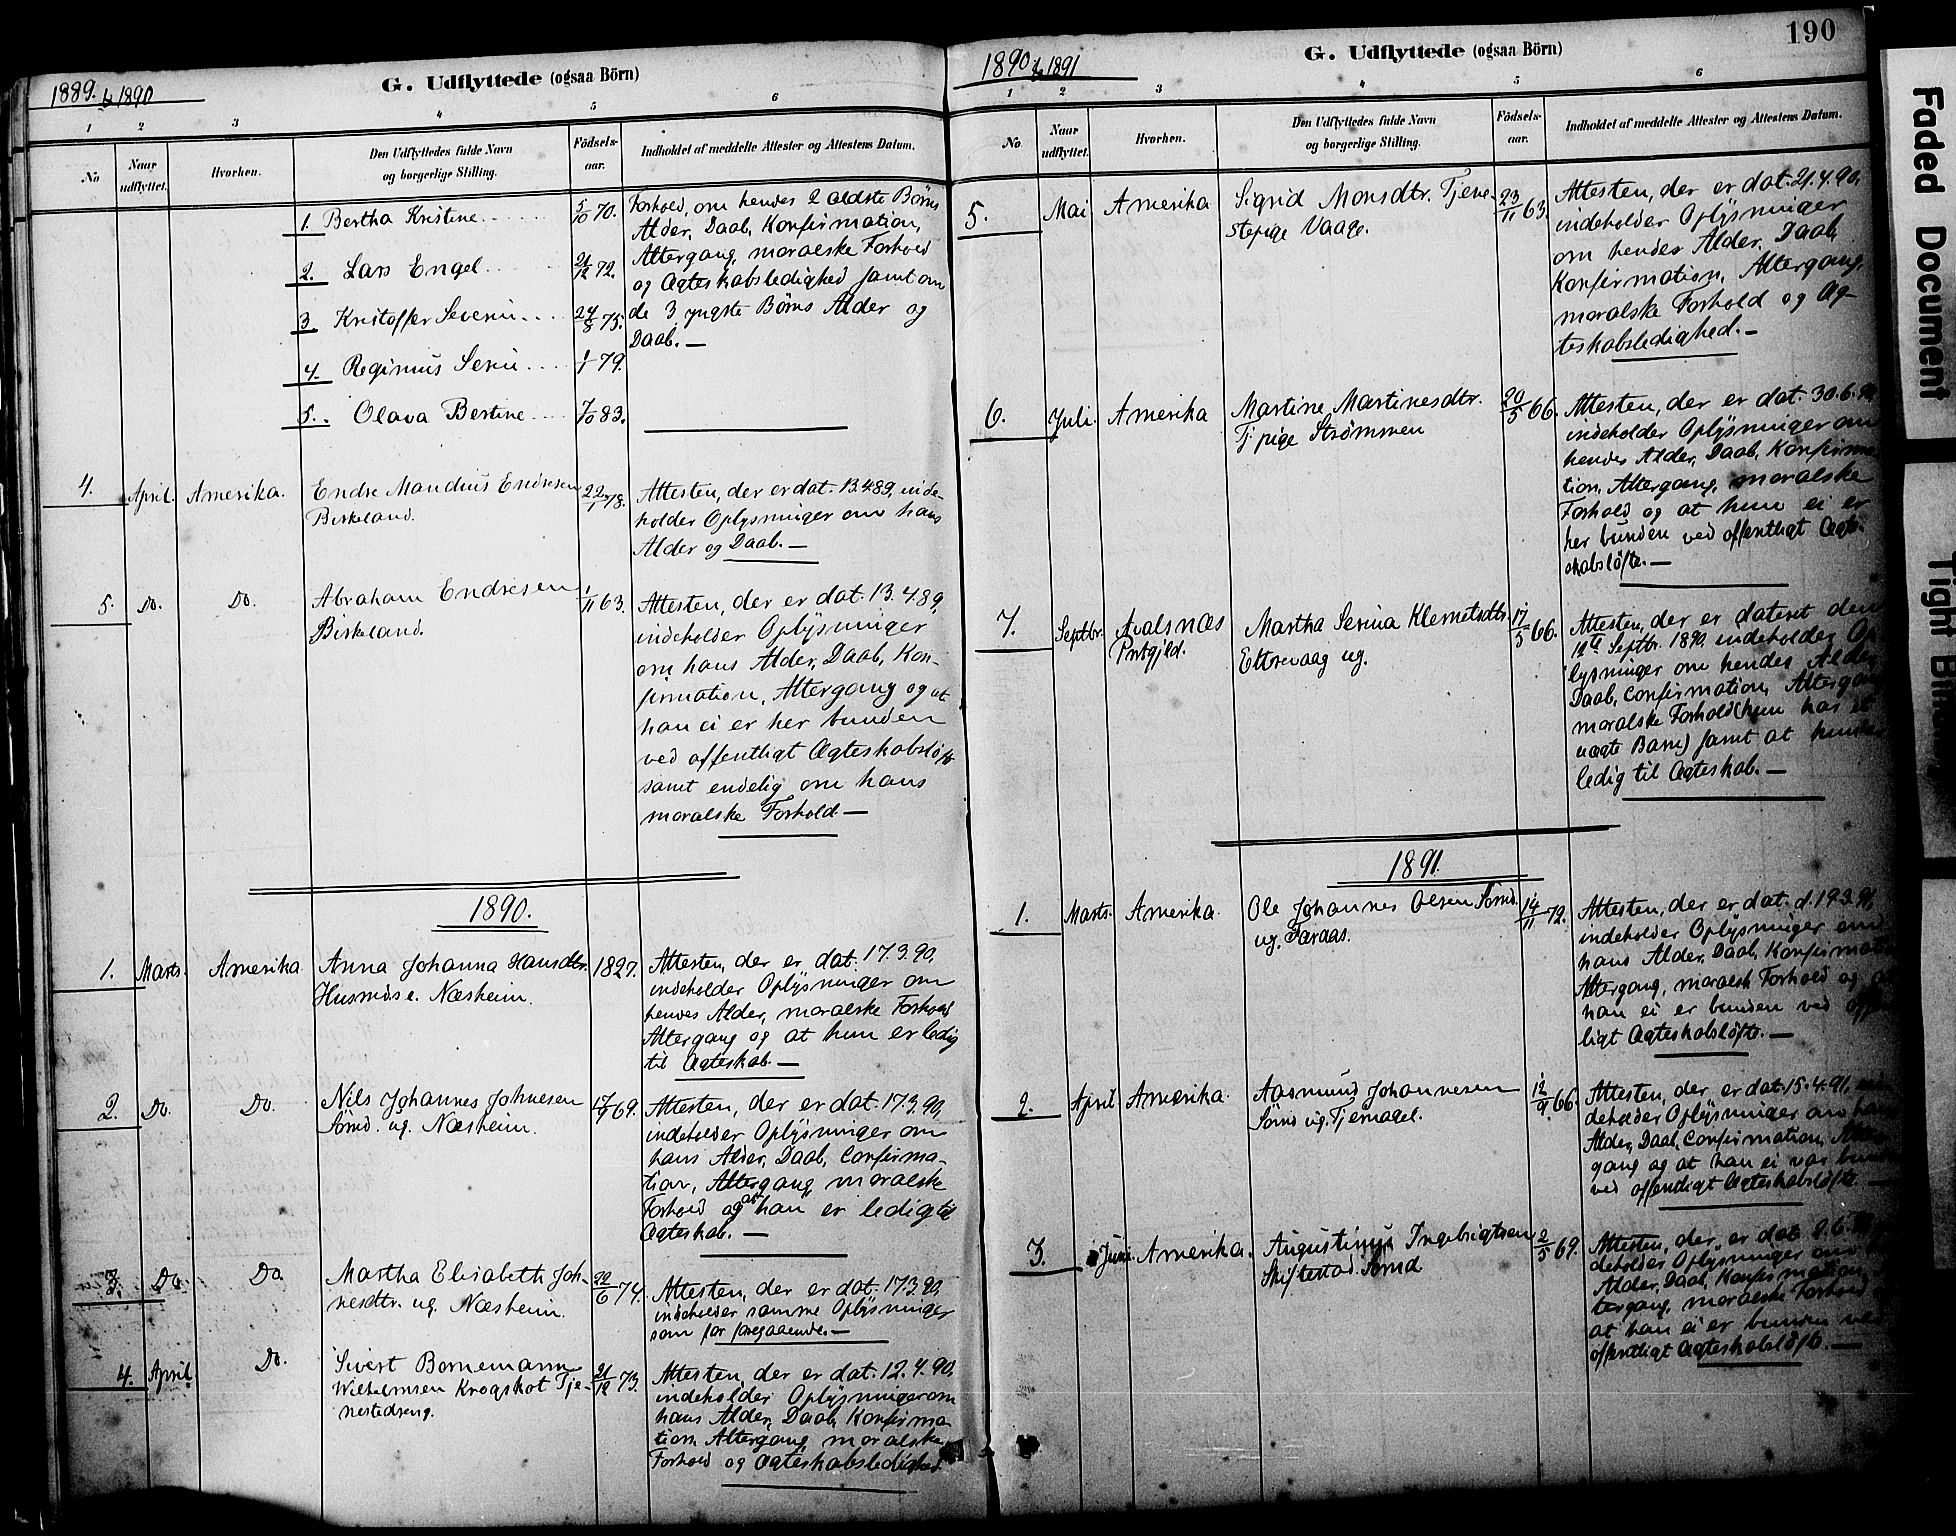 1889. & 1890
G. Udflyttede (ogsaa Börn)
1 2 3 4 5 6
No
Naar udflyttet.
Hvorhen.
Den Udflyttedes fulde Navn
og borgerlige Stilling.
Födsels-
aar.
Indholdet af meddelte Attester og Attestens Datum.
1. Bertha Kristine 5/10 70.
2. Lars Engel 21/12 72.
3 Kristoffer Severin 24/8 75.
4. Regimus Serin 79.
5. Olava Bertine 7/10 83.
Forhold, om hendes 2 ældste Børns
Alder, Daab, Konfirmation,
Altergang, moralske Forhold
og Ægteskabsledighed samt om
de 3 yngste Børns Alder og
Daab. —
4. April. Amerika. Endre Mandius Endresen
Birkeland.
22/1 78.
Attesten, der er dat. 13.4.89, inde-
holder Oplysninger om hans
Alder og Daab. —
5. Do. Do. Abraham Endresen
Birkeland.
1/11 63.
Attesten, der er dat. 13.4.89,
indeholder Oplysninger
om hans Alder, Daab, Kon-
firmation, Altergang og at
han ei er her bunden
ved offentligt Ægteskabsløfte
samt endelig om hans
moralske Forhold —
1890.
1. Marts. Amerika Anna Johanna Hansdtr.
Husmds e. Næsheim.
1827.
Attesten, der er dat. 17.3.90,
indeholder Oplysninger om
hendes Alder, moralske Forhold,
Altergang og at hun er ledig
til Ægteskab. —
2. Do. Do. Nils Johannes Johnesen
Sömd. ug. Næsheim.
69.
Attesten, der er dat. 17.3.90,
indeholder Oplysninger om
hans Alder, Daab, Confirma-
tion, Altergang moralske
Forhold og at han er ledig til
Ægteskab. —
3. Do. Do. Martha Elisabeth Joh-
nesdtr. ug. Næsheim.
22/6 74.
Attesten, der er dat. 17.3.90,
indeholder samme Oplysninger
som for foregaaende. —
4. April. Do. Sivert Bornemann
Wilhelmsen Krogskot Tje-
nestedreng.
21/12 73.
Attesten, der er dat. 12.4.90,
indeholder Oplysninger om
hans Alder, Daab, Konfirma
tion, Altergang, moralske
Forhold og Ægteskabsledighed.
1890 & 1891
G. Udflyttede (ogsaa Börn)
190
1 2 3 4 5 6
No.
Naar udflyttet.
Hvorhen.
Den Udflyttedes fulde Navn
og borgerlige Stilling.
Födsels-
aar.
Indholdet af meddelte Attester og Attestens Datum.
5. Mai Amerika Sigrid Monsdtr. Tjene-
stepige Vaage.
23/11 63.
Attesten, der er dat. 21.4.90,
indeholder Oplysninger
om hendes Alder, Daab,
Konfirmation, Altergang,
moralske Forhold og Æg-
teskabsledighed. —
6. Juli. Amerika Martine Martinesdtr.
Tj pige Strømmen
20/5 66.
Attesten, der er dat. 30.6.90,
indeholder Oplysninger om
hendes Alder, Daab, Konfirma
tion, Altergang, moralske
Forhold og at hun ei er
her bunden ved offentligt Ægte-
skabsløfte. —
7. Septbr. Avalsnæs
Prstgjeld.
Martha Serina Klemetsdtr.
Eltrevaag ug.
17/5 66.
Attesten, der er dateret den
12te Septbr. 1890, indeholder Op
lysninger om hendes Alder,
Daab, Confirmation, Altergang
moralske Forhold (hun har et
uægte Barn) samt at hun er
ledig til Ægteskab. —
1891.
1. Marts. Amerika. Ole Johannes Olsen Sömd.
ug. Færaas.
14/11 72.
Attesten, der er dat. d. 19.3.91,
indeholder Oplysninger om
hans Alder, Daab, Konfirmation
Altergang, moralsk Forhold og at
han ei er bunden ved off
ligt Ægteskabsløfte. —
2. April Amerika. Aasmund Johannesen
Sömd ug. Tjernagel.
12/9 66.
Attesten, der er dat. 15.4.91, in
deholder Oplysninger om hans
Alder, Daab, Confirmation, Alter
gang og at han ei var bunden
ved offentligt Ægteskabsløfte. —
3. Juni. Amerika. Augustinus Ingebrigtsen
Skiftestad Sömd
2/5 69.
Attesten, der er dat 9.6.
deholder Oplysninger om
Alder, Daab, Konfirmation,
tergang, moralske Forhold
at han ei er bunden ved
offentligt Ægteskabsløfte. —
Faded Document
Tight Bin